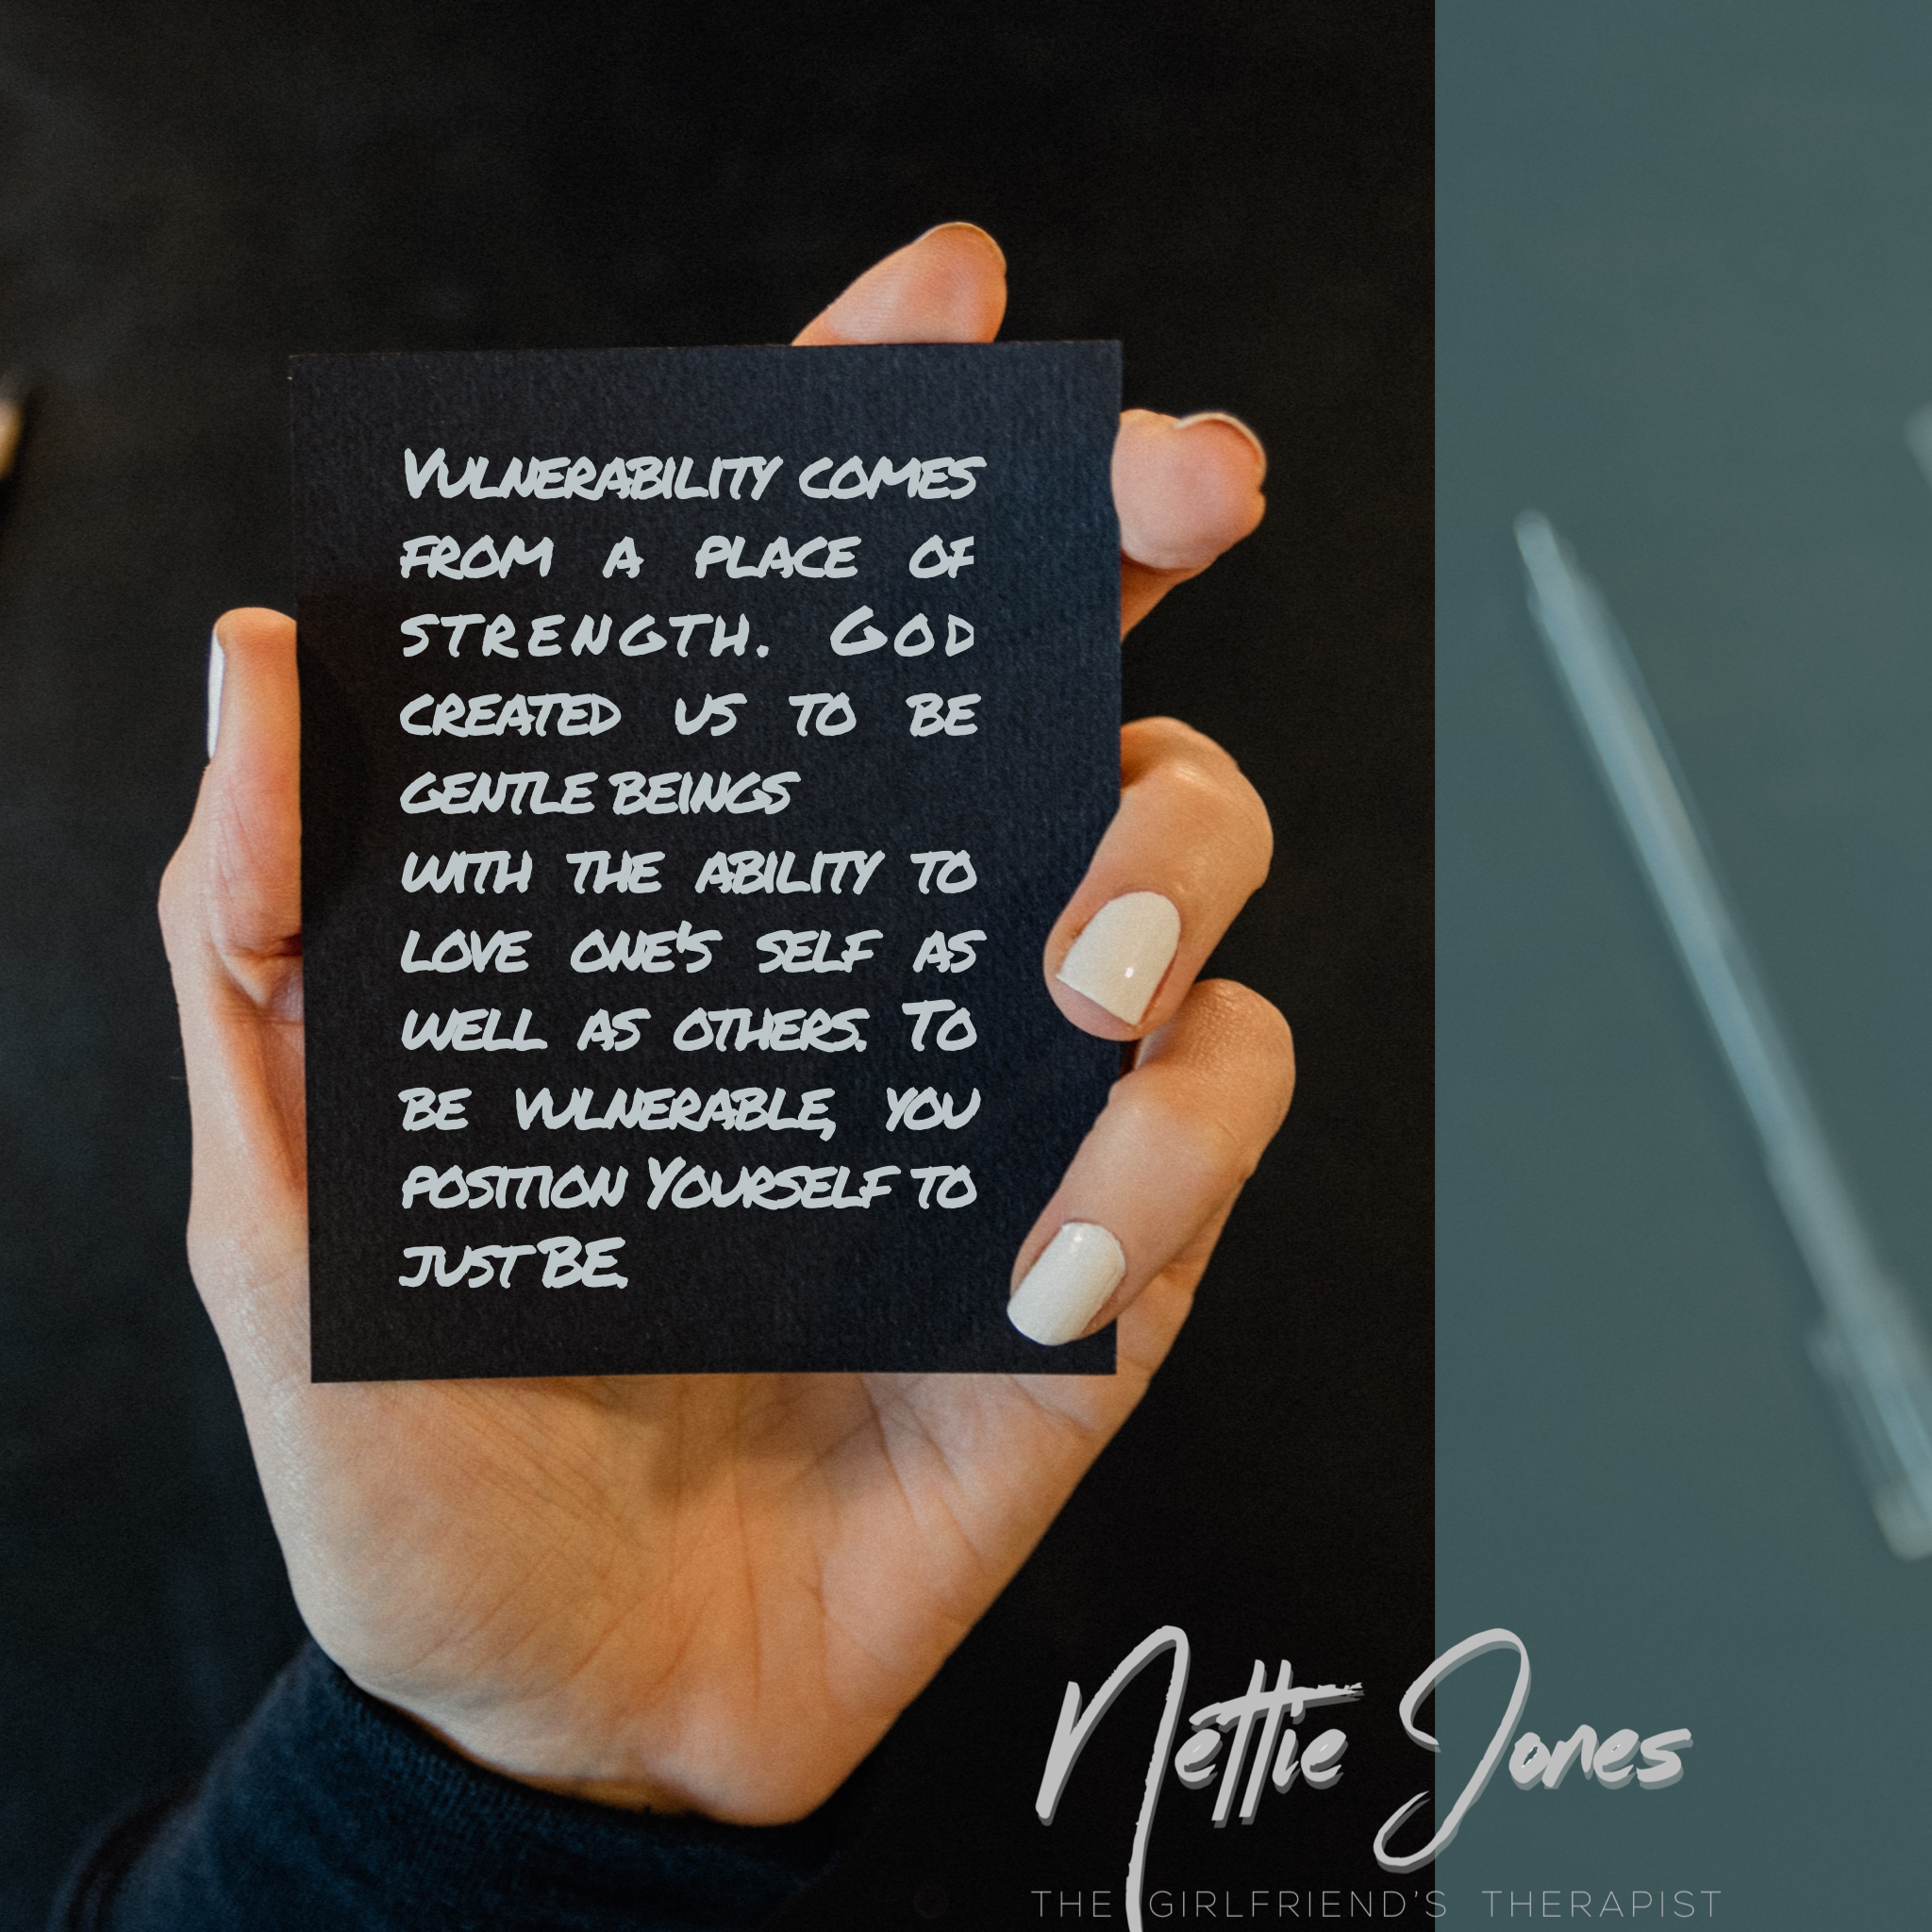 Vulnerability comes
from a place of
strength. God
created us to be
gentle beings
with the ability to
love one's self as
well as others. To
be vulnerable, you
position Yourself to
just BE.
Nettie Jones
THE GIRLFRIEND'S THERAPIST